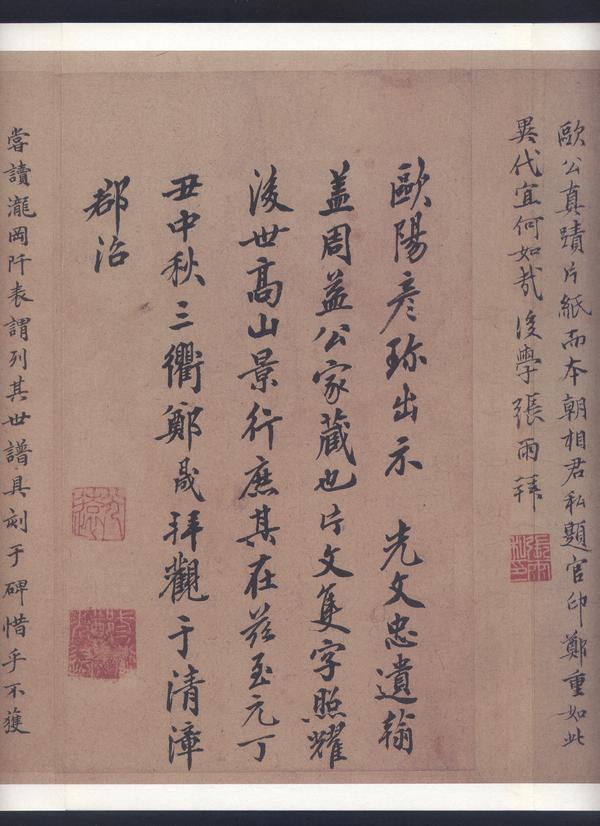 歐公真蹟片紙而本朝相君私題官印鄭重如此
異代宜何如哉後學張雨拜
歐陽彥珎出示 先文忠遺翰
盖周益公家藏也片文隻字照耀
後世高山景行庶其在茲至元丁
丑中秋三衢鄭晟拜觀于清漳
郡治
嘗讀瀧岡阡表謂列其世譜具刻于碑惜乎不獲